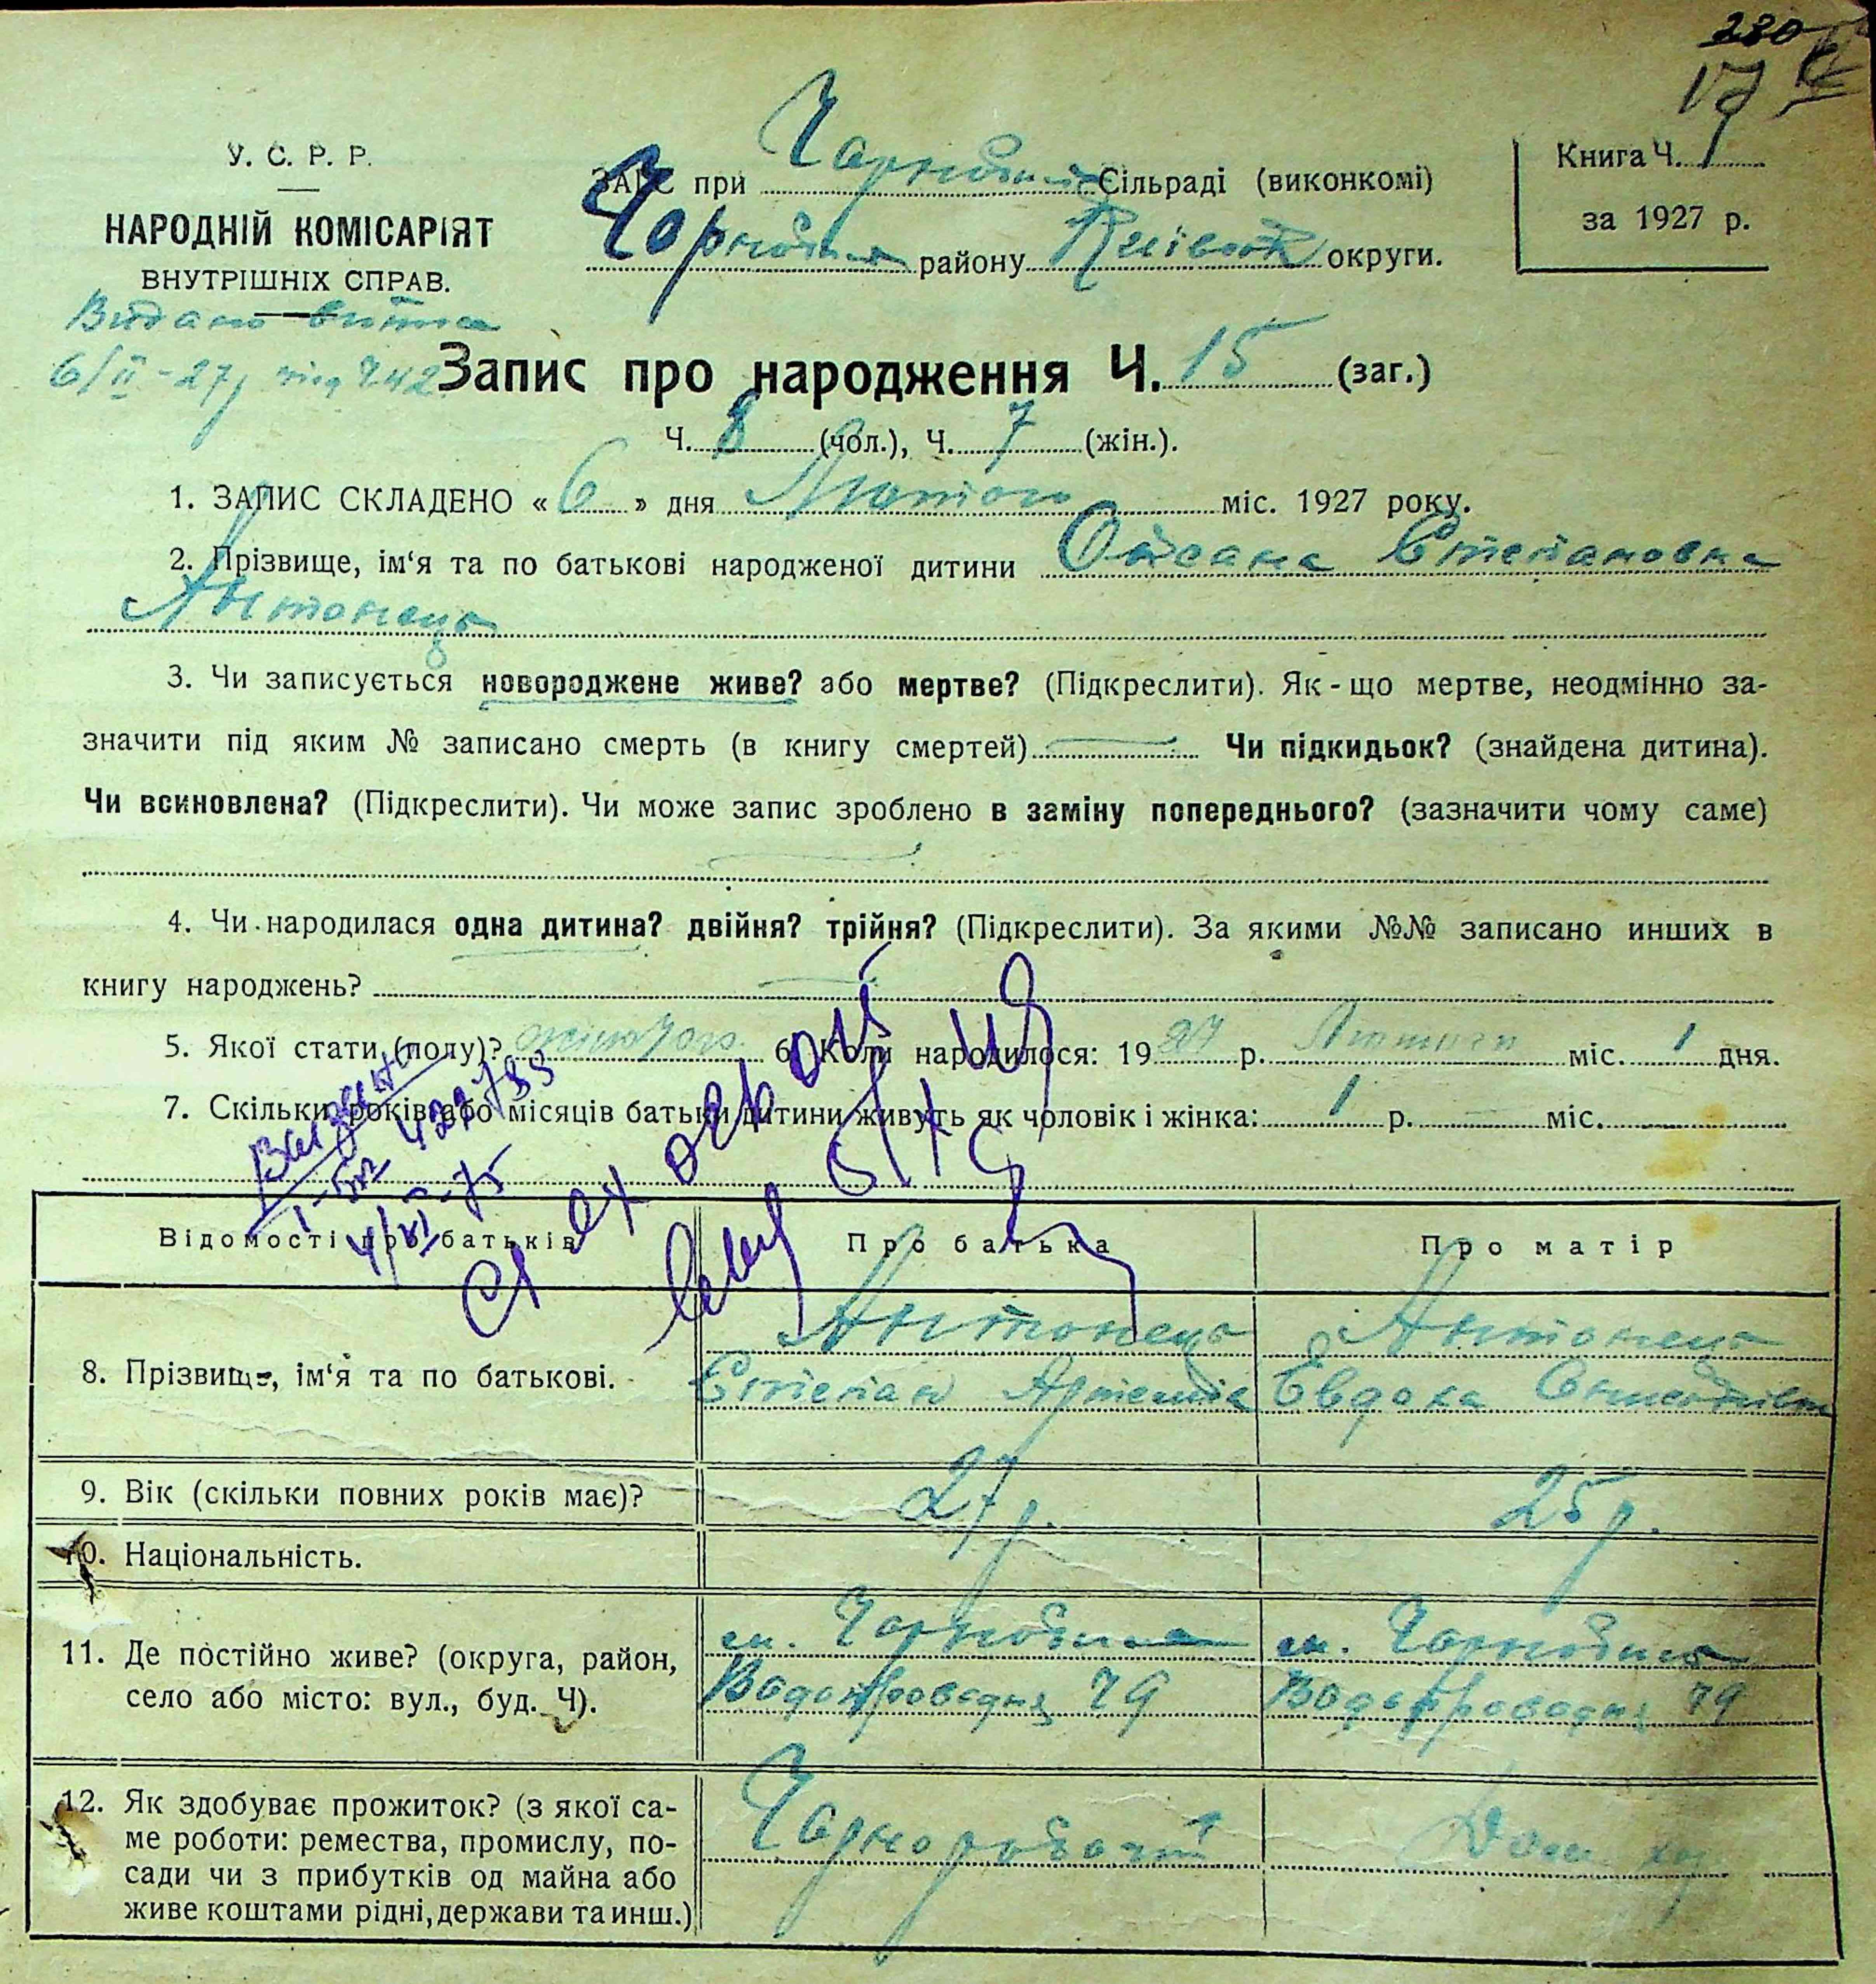 230
17
У. С. Р. Р.
НАРОДНІЙ КОМІСАРІЯТ
ВНУТРІШНІХ СПРАВ.
ЗАГС при Чорнобильск. Сільраді (виконкомі)
Чорнобил району Київськ округи.
Книга Ч. 1
за 1927 р.
Видано витяг
6/II-27р під Ч 42
Запис про народження Ч. 15 (заг.)
Ч. 8 (чол.), Ч. 7 (жін.).
1. ЗАПИС СКЛАДЕНО « 6 » дня Лютого міс. 1927 року.
2. Прізвище, ім'я та по батькові народженої дитини Оксана Степановна
Антонець
3. Чи записується новороджене живе? або мертве? (Підкреслити). Як-що мертве, неодмінно за-
значити під яким № записано смерть (в книгу смертей) Чи підкидьок? (знайдена дитина).
Чи всиновлена? (Підкреслити). Чи може запис зроблено в заміну попереднього? (зазначити чому саме)
4. Чи народилася одна дитина? двійня? трійня? (Підкреслити). За якими №№ записано инших в
книгу народжень?
5. Якої стати (полу)? жіночого 6. Коли народилося: 1927 р. Лютого міс. 1 дня.
7. Скільки років або місяців батьки дитини живуть як чоловік і жінка: 1 р. — міс.
Відомості про батьків
Про батька
Про матір
8. Прізвище, ім'я та по батькові.
Антонець
Степан Артемів
Антонець
Евдока
9. Вік (скільки повних років має)?
27 р.
25 р.
10. Національність.
11. Де постійно живе? (округа, район,
село або місто: вул., буд. Ч).
м. Чорнобиль
Водопроводна 79
м. Чорнобиль
Водопроводна 79
12. Як здобуває прожиток? (з якої са-
ме роботи: ремества, промислу, по-
сади чи з прибутків од майна або
живе коштами рідні, держави та инш.)
Чорноробочий
Дом. хоз